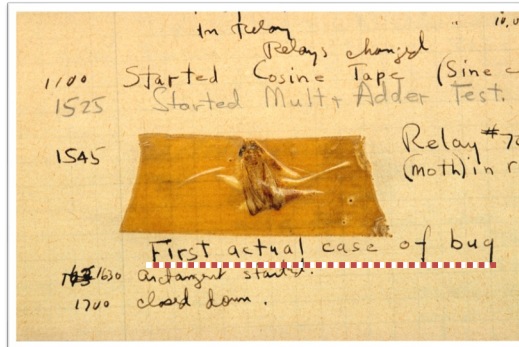 In Relay
Relays changed
1100 Started Cosine Tape (Sine c
1525 Started Mult + Adder Test.
1545 Relay #70
(moth) in r
First actual case of bug
1630 started.
1700 closed down.